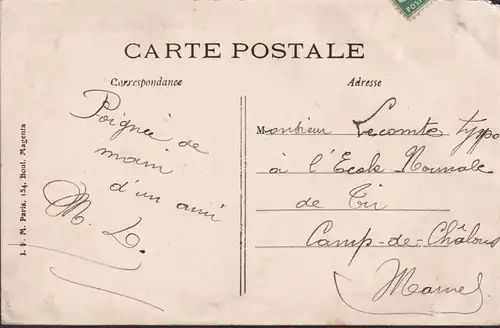 POST
CARTE POSTALE
Correspondance
Adresse
Poignée de
main
d'un ami
M. L.
Monsieur Lecomte typo
à l'Ecole Normale
de Tir
Camp-de-Châlons
Marne
I. P. M. Paris, 154, Boul. Magenta